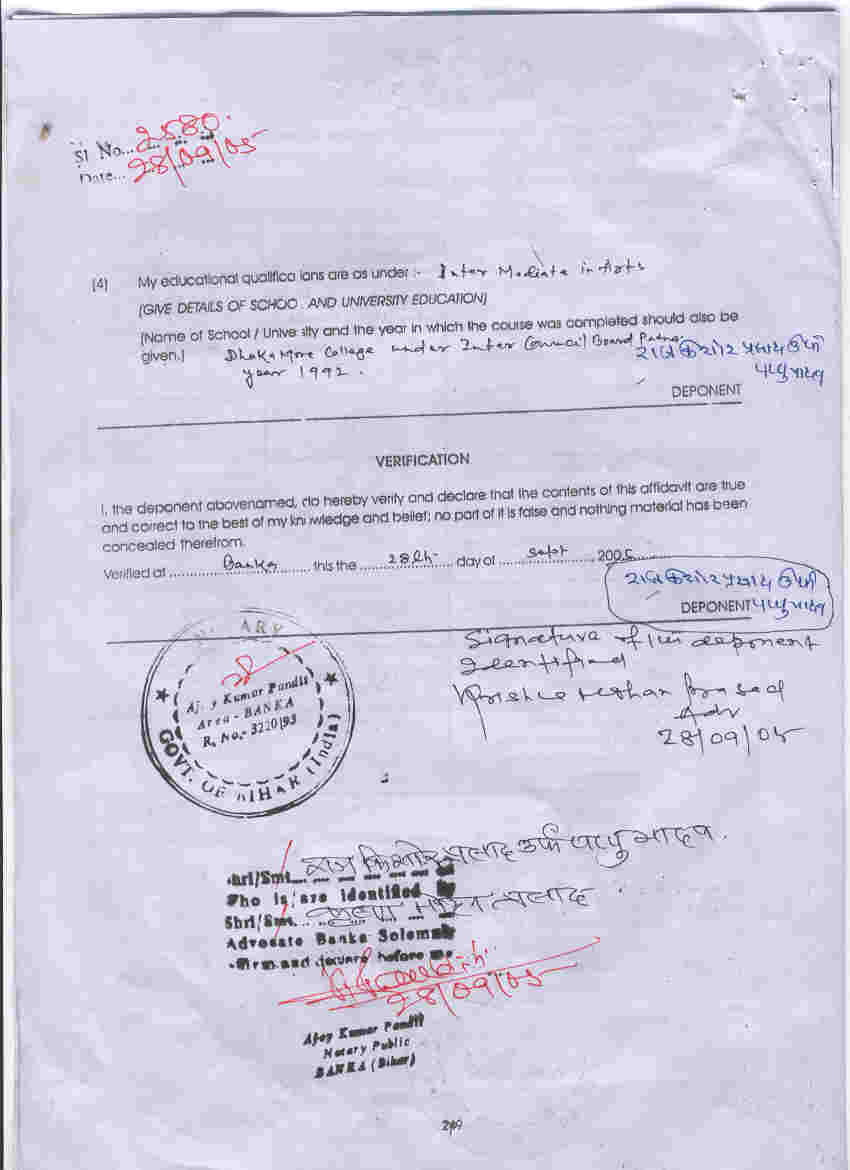 Sl No... 2580.
Date... 28/09/05
(4) My educational qualifica ions are as under :- Inter Mediate in Arts
(GIVE DETAILS OF SCHOO . AND UNIVERSITY EDUCATION)
(Name of School / Unive sity and the year in which the course was completed should also be
given.) Dhaka More College under Inter Council Board Patna.
year 1992.
DEPONENT
VERIFICATION
I, the deponent abovenamed, do hereby verify and declare that the contents of this affidavit are true
and correct to the best of my kn wledge and belief; no part of it is false and nothing material has been
concealed therefrom.
Verified at Banka this the 28th day of Sept 2005
DEPONENT
Signature of the deponent
Identified
Prasad
Adv
28/09/05
ARY
Aj y Kumar Pandit
Area - BANKA
R. No.- 3220/93
GOVT. OF BIHAR (India)
Shri/Smt. राज किशोर प्रसाद उर्फ पप्पु यादव.
Who is/are identified by
Shri/Smt. प्रसाद
Advocate Banka Solemn
firm and declare before me
28/09/05
Ajoy Kumar Pandit
Notary Public
BANKA (Bihar)
249